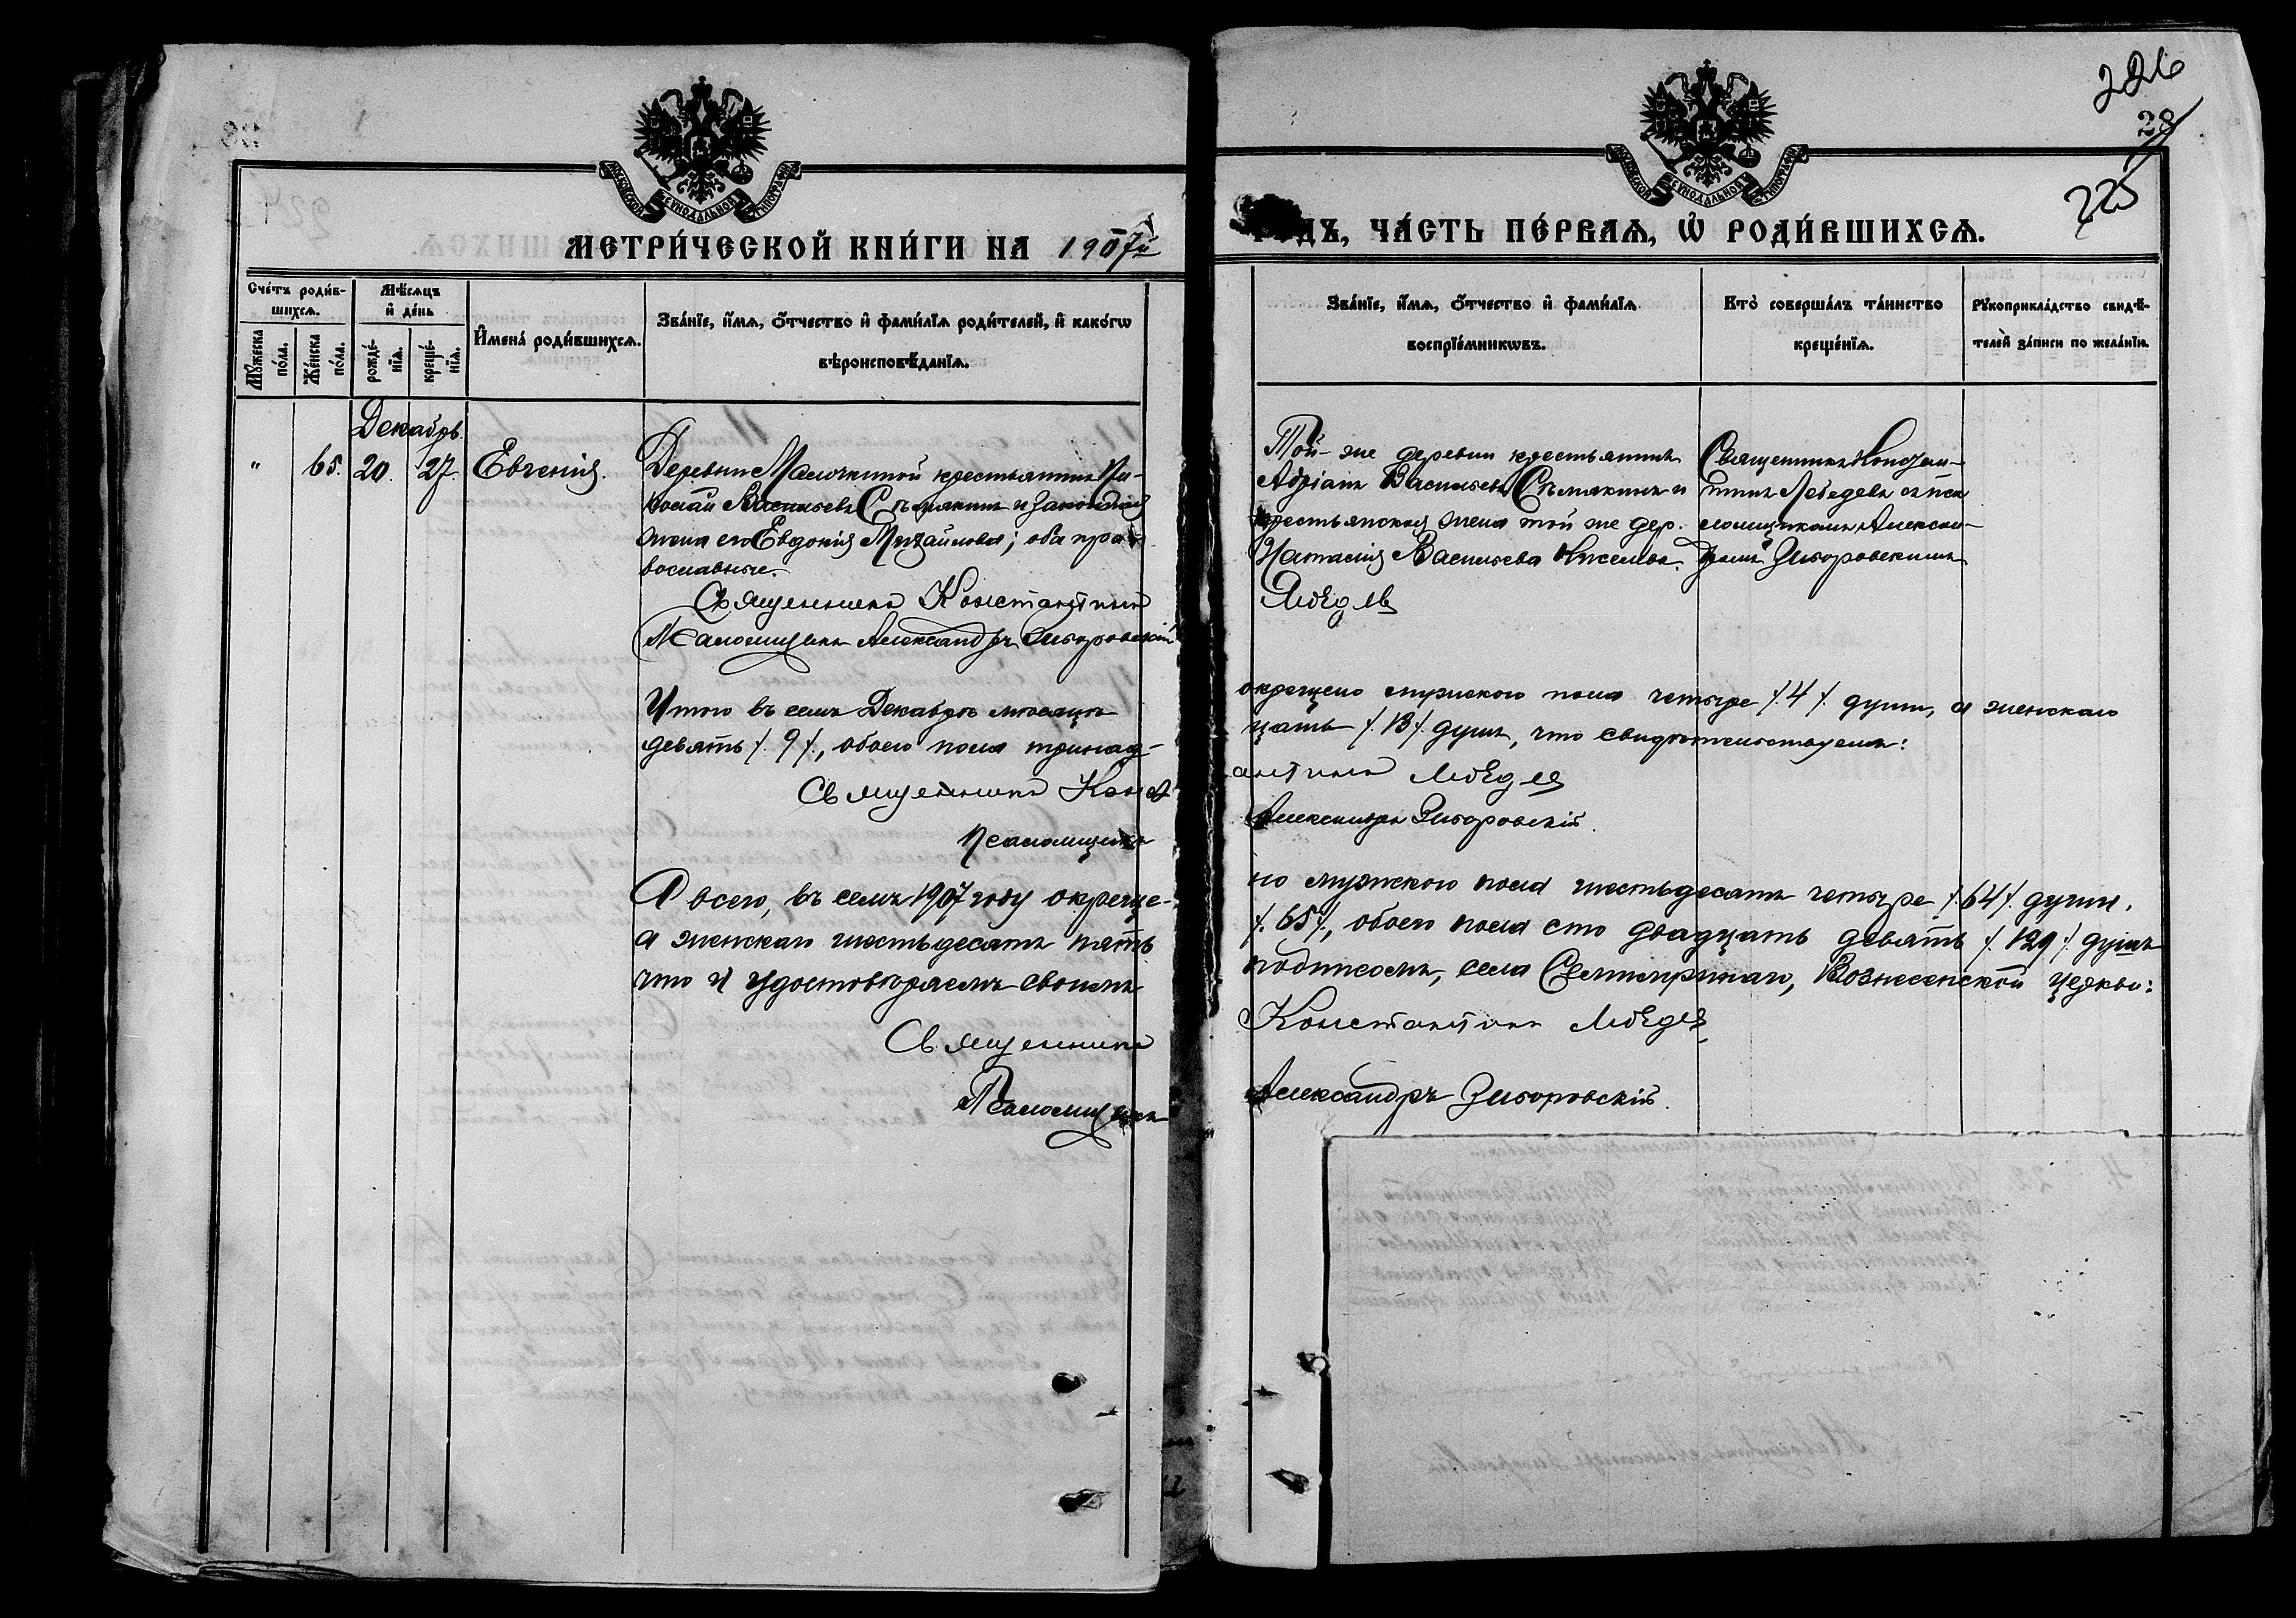 226
28
225
МОСКОВСКОЙ СѴНОДАЛЬНОЙ ТИПОГРАФІИ
МОСКОВСКОЙ СѴНОДАЛЬНОЙ ТИПОГРАФІИ
МЕТРИ́ЧЕСКОЙ КНИ́ГИ НА 1907й
ДЪ, ЧА́СТЬ ПЕ́РВАѦ, Ѡ҆ РОДИ́ВШИХСѦ.
Сче́тъ роди́в-
шихсѧ.
Мꙋ́жеска
по́ла.
Же́нска
по́ла.
Мѣ́сѧцъ
и҆ де́нь
рожде́-
нїѧ.
креще́-
нїѧ.
И҆мена̀ роди́вшихсѧ.
Зва́нїе, и҆́мѧ, ѻ҆́тчество и҆ фами́лїѧ роди́телей, и҆ како́гѡ
вѣроисповѣ́данїѧ.
Зва́нїе, и҆́мѧ, ѻ҆́тчество и҆ фами́лїѧ
воспрїе́мникѡвъ.
Кто̀ соверша́лъ та́инство
креще́нїѧ.
Рꙋкоприкла́дство свидѣ́-
телей за́писи по жела́нїю.
Декабрь.
" 65. 20. 27. Евгенія.
Деревни крестьянинъ Ни-
колай Васильевъ и законная
жена его Евдокія Михайлова; оба пра-
вославные.
Священникъ Константинъ
Псаломщикъ Александръ Зиборовскій
Той-же деревни крестьянинъ
Адріанъ Васильевъ и
крестьянская жена той же дер.
Наталія Васильева
Лебедевъ
Священникъ Констан-
тинъ Лебедевъ съ пса-
ломщикомъ Алексан-
дромъ Зиборовскимъ
Итого въ семъ Декабрѣ мѣсяцѣ
окрещено мужскаго пола четыре /.4/. души, а женскаго
девять /.9/., обоего пола тринад-
цать /.13/. душъ, что свидѣтельствуемъ:
Священникъ Конст
антинъ Лебедев
Псаломщикъ
Александръ Зиборовскій.
А всего, въ семъ 1907 году окреще-
но мужского пола шестьдесятъ четыре /.64/. души,
а женскаго шестьдесятъ пять
/.65/., обоего пола сто двадцать девять /.129/. душъ
что и удостовѣряемъ своимъ
подписомъ, села Вознесенской церкви:
Священникъ
Константинъ Лебедев
Псаломщикъ
Александръ Зиборовскій.